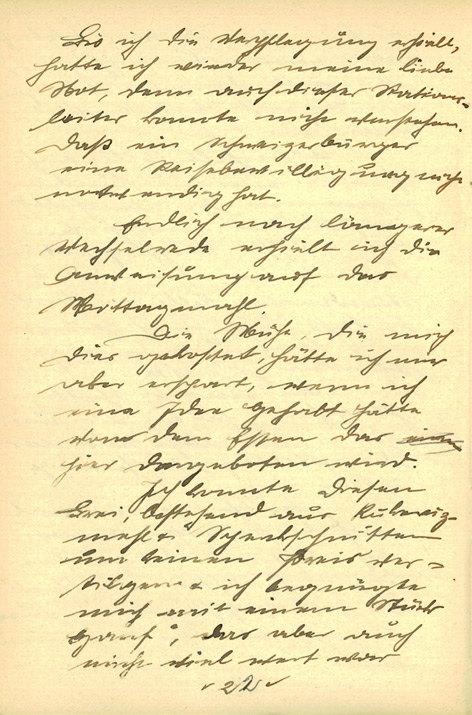 Bis ich die Verpflegung erhielt,
hatte ich wieder meine liebe
Not, denn auch dieser Stations-
leiter konnte nicht verstehen.
Daß ein Schweizerbürger
eine Reisebewilligung nicht
notwendig hat.
Endlich nach längerer
Wechselrede erhielt ich die
Anweisung auf das
Mittagmahl.
Die Mühe, die mich
dies gekostet, hätte ich mir
aber erspart, wenn ich
eine Idee gehabt hätte
von dem Essen das
hier dargeboten wird.
Ich konnte diesen
Brei, bestehend aus
mehl &
um keinen Preis ver-
tilgen & ich begnügte
mich mit einem Stück
das aber auch
nicht viel wert war
22